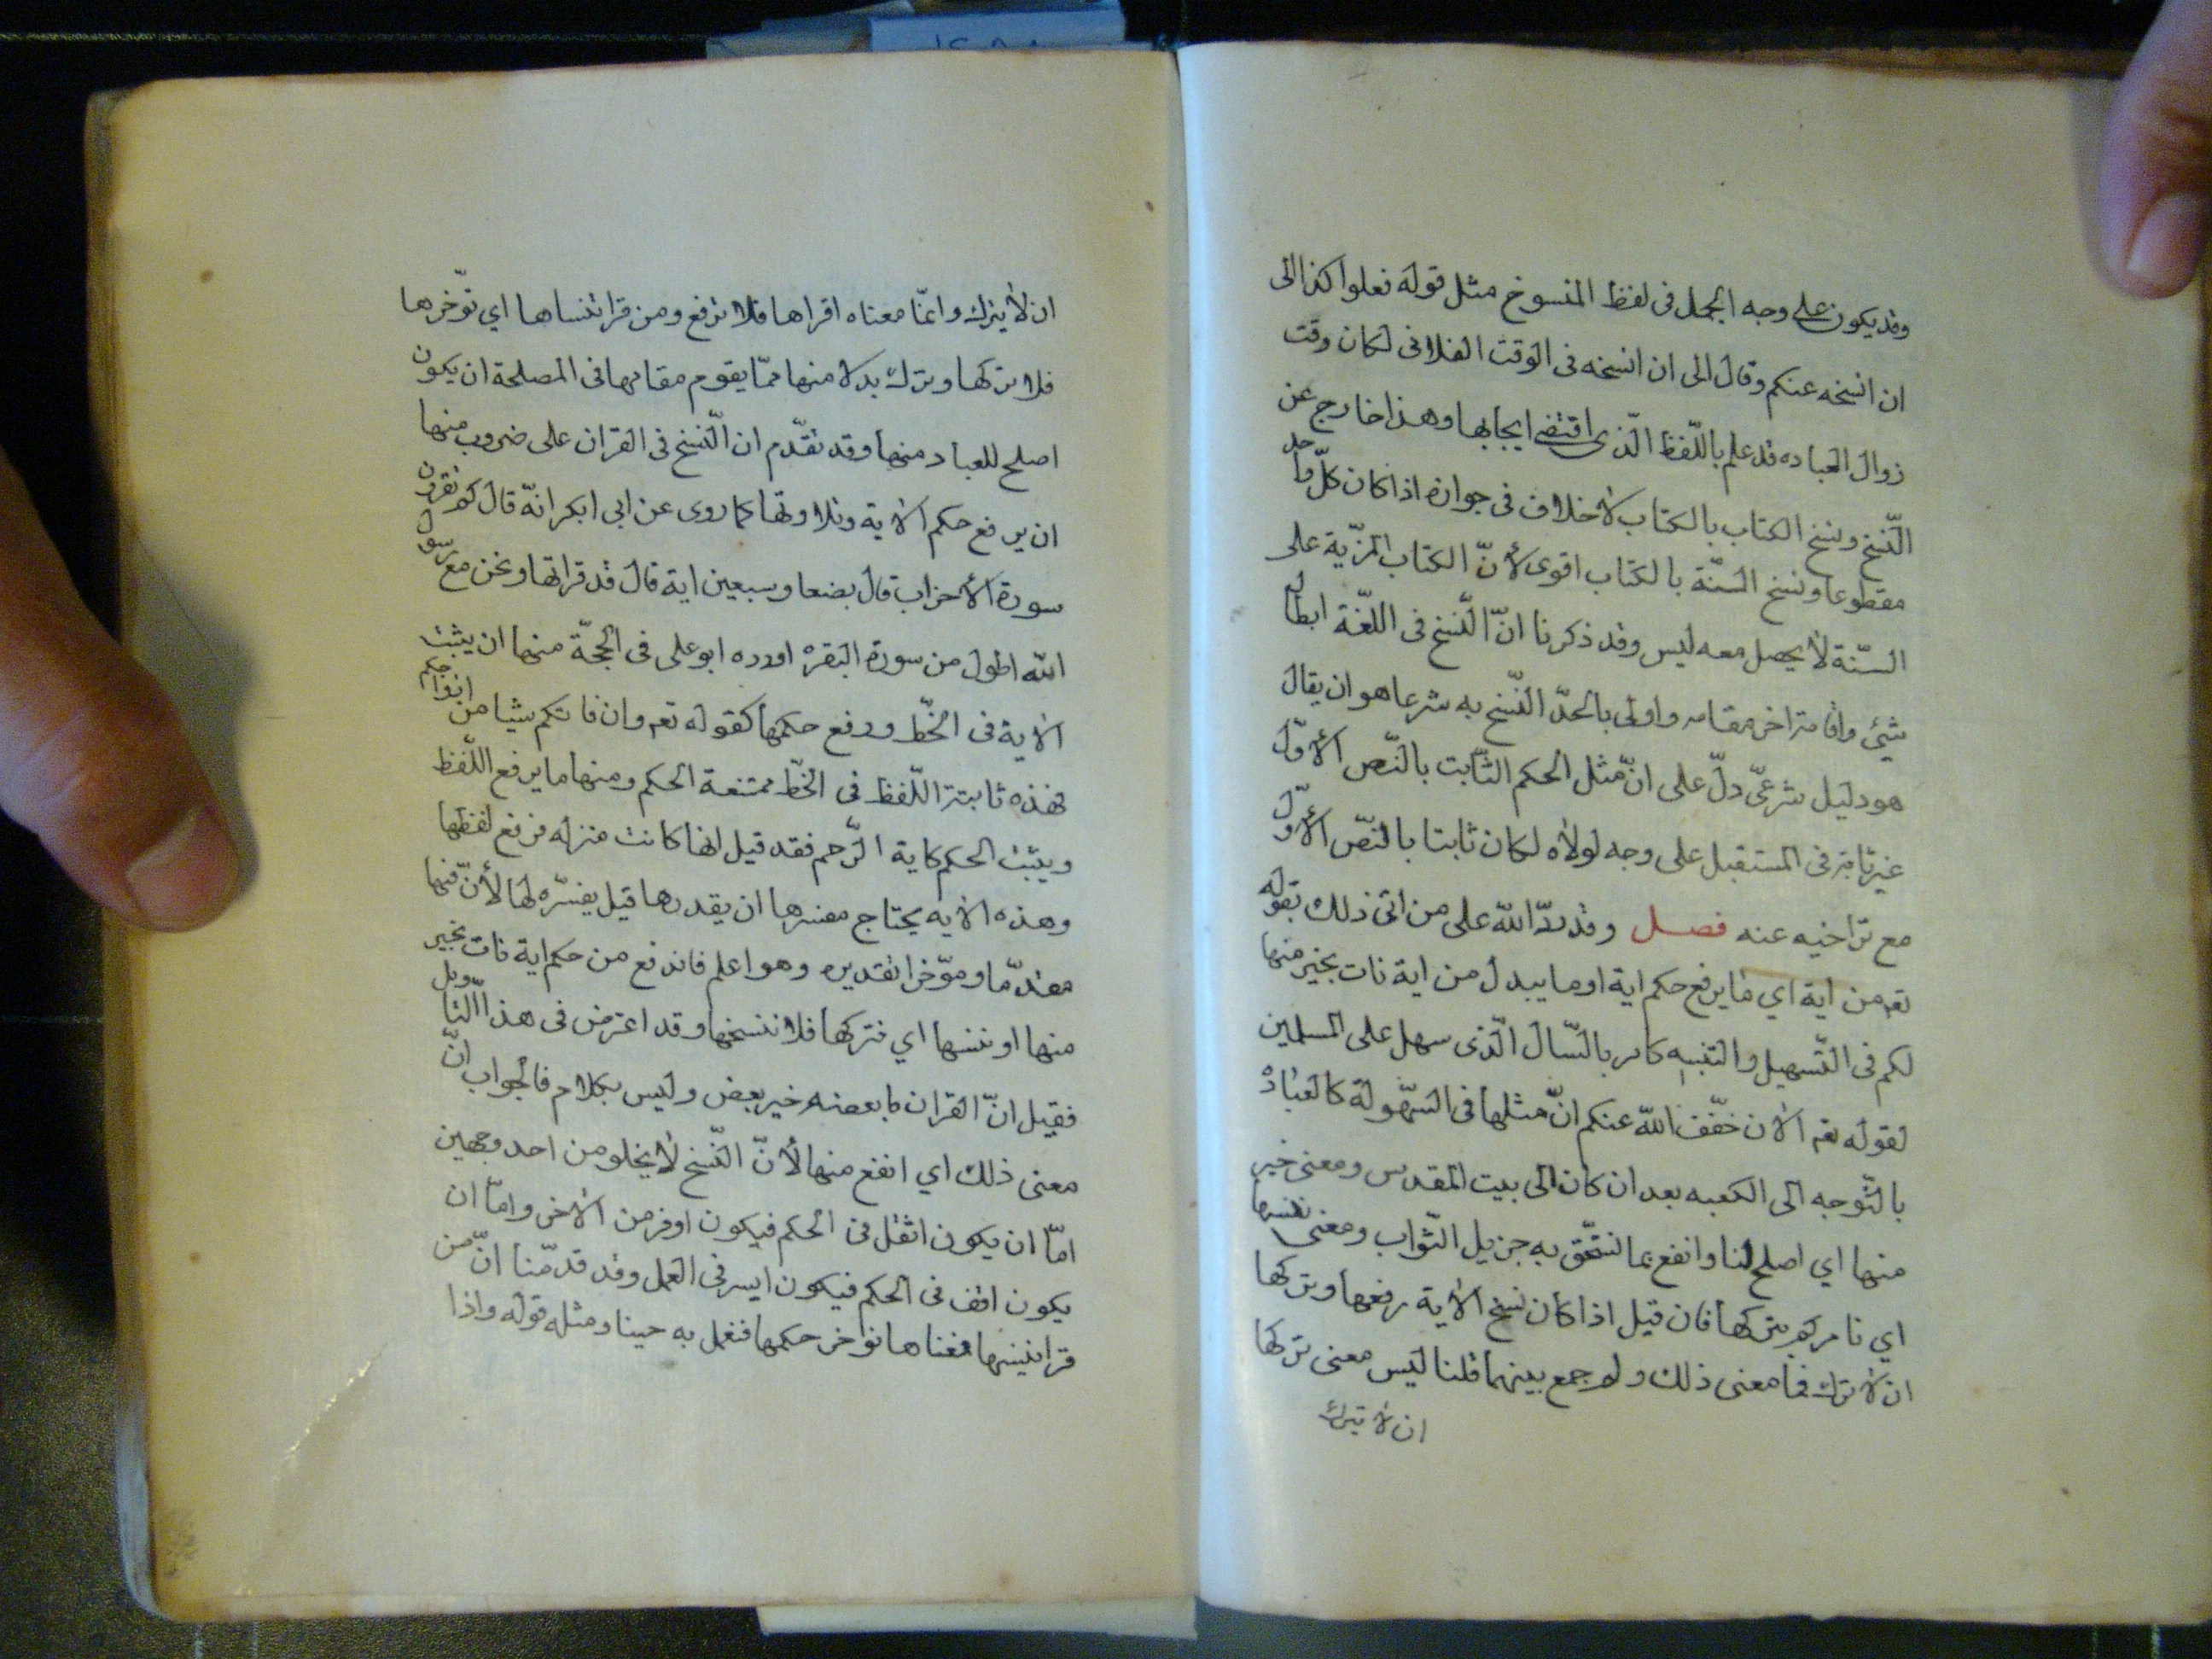 وقد يكون على وجه الجمل فى لفظ المنسوخ مثل قوله تعلوا كذا الى
ان انسخه عنكم وقال الى ان انسخه فى الوقت الفلانى لكان وقت
زوال العباده قد علم باللّفظ الّذى اقتضى ايجابها وهذا خارج عن حد
النّسخ ونسخ الكتاب بالكتاب لاخلاف فى جوازه اذا كان كلّ
مقطوعا ونسخ السّنّة بالكتاب اقوى لأنّ الكتاب المزيّة على
السّنة لا يحصل معه ليس وقد ذكرنا انّ النّسخ فى اللّغة ابطال
شئ واقامة اخر مقامه واولى بالحدّ النّسخ به شرعا هو ان يقال
هو دليل شرعىّ دلّ على انّ مثل الحكم الثّابت بالنّص الأوّل
غير ثابت فى المستقبل على وجه لولاه لكان ثابتا بالنّصّ الأوّل
مع تراخيه عنه فصل وقد ردّ الله على من اتى ذلك بقوله
تعه من اية اي ما يرفع حكم اية او ما يبدل من اية نات بخير منها
لكم فى التّسهيل والتنبيه كامر بالنّسال الّذى سهل على المسلمين
لقوله تعه الان خفّف الله عنكم انّ مثلها فى السّهولة كالعبادة
بالتّوجه الى الكعبه بعد ان كان الى بيت المقدس ومعنى خير
منها اي اصلح لنا وانفع بما نستحّق به جزيل الثّواب ومعنى ننسها
اي نامركم بتركها فان قيل اذا كان نسخ الاية رفعها وتركها
ان لا ترك فما معنى ذلك ولم جمع بينهما قلنا ليس معنى تركها
ان لا يترك
ان لا يترك وانمّا معناه اقراها فلا ترفع ومن قرا ننساها اي توّخرها
فلا تركها وترك بدلا منها ممّا يقوم مقامها فى المصلحة ان يكون
اصلح للعباد منها وقد تقدّم ان النّسخ فى القران على ضروب منها
ان يرفع حكم الاية وتلاوتها كما روى عن ابى ابكر انّه قال كم تقرون
سورة الأحزاب قال بضعا وسبعين اية قال قد قراتها ونحن مع رسول
الله اطول من سورة البقره اورده ابو على فى الحجّة منها ان يثبت
الاية فى الخّط ورفع حكمها كقوله تعه وان فاتكم شيا من ازواجكم
فهذه ثابتة اللّفظ فى الخّط ممتنعة الحكم ومنها ما يرفع اللّفظ
ويثبت الحكم كاية الرّجم فقد قيل انها كانت منزله فرفع لفظها
وهذه الايه يحتاج مفسرها ان يقدرها قيل يفسّره لها لأنّ فيها
مقدّما وموّخرا تقديره وهو اعلم فاندفع من حكم اية نات بخير
منها او ننسها اي نتركها فلا ننسخها وقد اعترض فى هذا التّاويل
فقيل انّ القران ما بعضه خير بعض وليس بكلام فالجواب انّ
معنى ذلك اي انفع منها لأنّ النّسخ لا يخلو من احد وجهين
امّا ان يكون اثقل فى الحكم فيكون اوفر من الاخر وامّا ان
يكون اخف فى الحكم فيكون ايسر فى العمل وقد قدمّنا انّ من
قرا ننسها فمعناها نواخر حكمها فنعمل به حينا ومثله قوله واذا